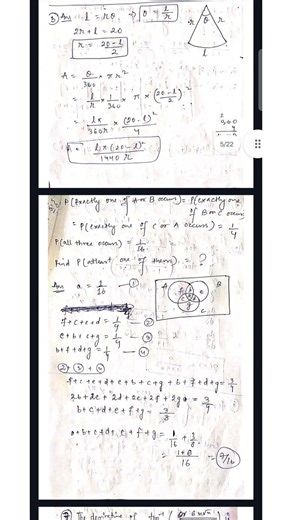 ③ Ans l = rθ → θ = l/r
2r + l = 20
r = 20-l/2
A = θ/360 × πr²
= l/r × 1/360 × π × (20-l/2)²
= lπ/360r × (20-l)²/4
A = lπ(20-l)²/1440 r
r θ r
l
5/22
P(Exactly one of A or B occurs) = P(exactly one of B or C occurs)
= P(exactly one of C or A occurs) = 1/4
P(all three occurs) = 1/16
Find P(atleast one of them) = ?
Ans a = 1/16 — ①
A B
C
f+c+e+d = 1/4 — ②
e+b+c+g = 1/4 — ③
b+f+d+g = 1/4 — ④
②+③+④
f+c+e+d+e+b+c+g+b+f+d+g = 3/4
2b+2c+2d+2e+2f+2g = 3/4
b+c+d+e+f+g = 3/8
a+b+c+d+e+f+g = 1/16 + 3/8
= 1+6/16
⑦ The derivative of